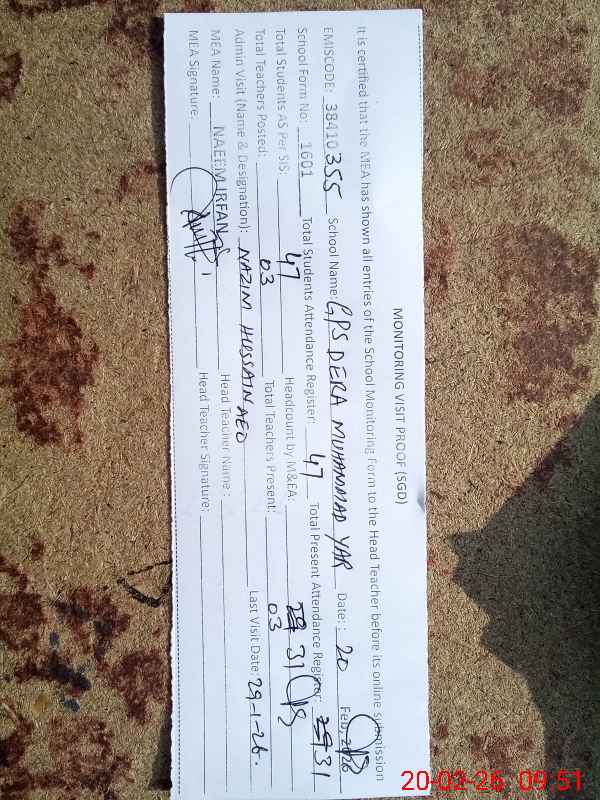 MONITORING VISIT PROOF (SGD)
It is certified that the MEA has shown all entries of the School Monitoring Form to the Head Teacher before its online submission
EMISCODE: 38410355 School Name: GPS DERA MUHAMMAD YAR Date: 20 Feb, 2026
School Form No: 1601 Total Students Attendance Register: 47 Total Present Attendance Register: 31
Total Students AS Per SIS: 47 Headcount by M&EA: 31
Total Teachers Posted: 03 Total Teachers Present: 03
Admin Visit (Name & Designation): NAZIM HUSSAIN AEO Last Visit Date: 29-1-26.
MEA Name: NAEEM IRFAN Head Teacher Name :
MEA Signature: Head Teacher Signature:
20-02-26 09:51